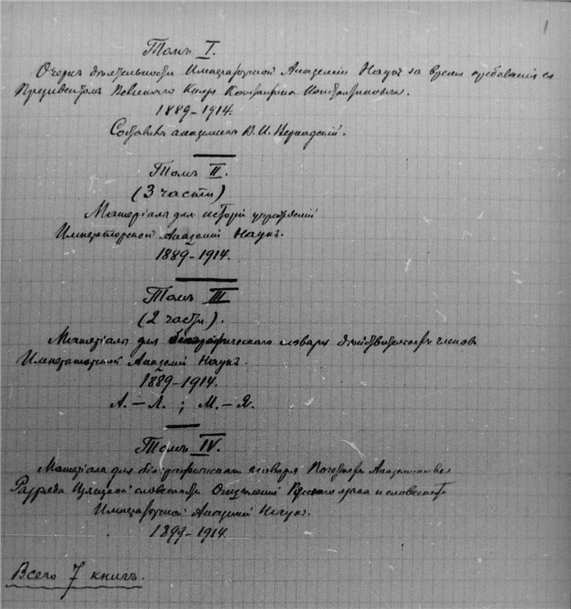 1
Томъ I.
Очеркъ дѣятельности Императорской Академіи Наукъ за время пребыванія ея
Президентомъ Великаго Князя Константина Константиновича.
1889–1914.
Составилъ академикъ В. И. Вернадскій.
Томъ II.
(3 части)
Матеріалы для исторіи учрежденій
Императорской Академіи Наукъ.
1889–1914.
Томъ III
(2 части).
Матеріалы для біографическаго словаря дѣйствительныхъ членовъ
Императорской Академіи Наукъ.
1889–1914.
А.–Л. ; М.–Я.
Томъ IV.
Матеріалы для біографическаго словаря Почетныхъ Академиковъ
Разряда Изящной словесности Отдѣленія Русскаго языка и словесности
Императорской Академіи Наукъ.
1899–1914.
Всего 7 книгъ.